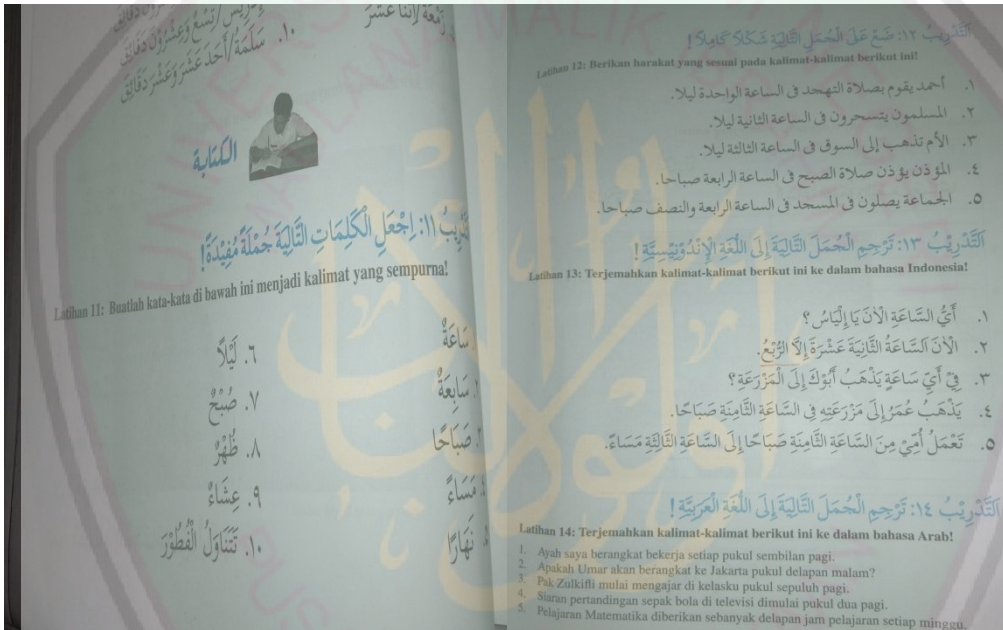 إِدْرِيْسُ / تِسْعٌ وَعِشْرُوْنَ دَقَائِقَ
١٠. سَلَمَةُ / أَحَدَ عَشَرَ وَعَشَرَ دَقَائِقَ
جُمْعَةُ / اِثْنَا عَشَرَ
الكِتَابَة
تَدْرِيْبُ ١١: اِجْعَلِ الْكَلِمَاتِ التَّالِيَةَ جُمْلَةً مُفِيْدَةً!
Latihan 11: Buatlah kata-kata di bawah ini menjadi kalimat yang sempurna!
سَاعَةٌ
سَابِعَةٌ
صَبَاحًا
مَسَاءً
نَهَارًا
٦. لَيْلًا
٧. صُبْحٌ
٨. ظُهْرٌ
٩. عِشَاءٌ
١٠. تَتَنَاوَلُ الْفُطُوْرَ
اَلتَّدْرِيْبُ ١٢: ضَعْ عَلَى الْجُمَلِ التَّالِيَةِ شَكْلًا كَامِلًا!
Latihan 12: Berikan harakat yang sesuai pada kalimat-kalimat berikut ini!
١. أحمد يقوم بصلاة التهجد فى الساعة الواحدة ليلا.
٢. المسلمون يتسحرون فى الساعة الثانية ليلا.
٣. الأم تذهب إلى السوق فى الساعة الثالثة ليلا.
٤. المؤذن يؤذن صلاة الصبح فى الساعة الرابعة صباحا.
٥. الجماعة يصلون فى المسجد فى الساعة الرابعة والنصف صباحا.
اَلتَّدْرِيْبُ ١٣: تَرْجِمِ الْجُمَلَ التَّالِيَةَ إِلَى اللُّغَةِ الْإِنْدُوْنِيْسِيَّةِ!
Latihan 13: Terjemahkan kalimat-kalimat berikut ini ke dalam bahasa Indonesia!
١. أَيُّ السَّاعَةِ الْآنَ يَا إِلْيَاسُ؟
٢. الْآنَ اَلسَّاعَةُ الثَّانِيَةَ عَشْرَةَ إِلَّا الرُّبْعُ.
٣. فِيْ أَيِّ سَاعَةٍ يَذْهَبُ أَبُوْكَ إِلَى الْمَزْرَعَةِ؟
٤. يَذْهَبُ عُمَرُ إِلَى مَزْرَعَتِهِ فِى السَّاعَةِ الثَّامِنَةِ صَبَاحًا.
٥. تَعْمَلُ أُمِّيْ مِنَ السَّاعَةِ الثَّامِنَةِ صَبَاحًا إِلَى السَّاعَةِ الثَّالِثَةِ مَسَاءً.
اَلتَّدْرِيْبُ ١٤: تَرْجِمِ الْجُمَلَ التَّالِيَةَ إِلَى اللُّغَةِ الْعَرَبِيَّةِ!
Latihan 14: Terjemahkan kalimat-kalimat berikut ini ke dalam bahasa Arab!
1. Ayah saya berangkat bekerja setiap pukul sembilan pagi.
2. Apakah Umar akan berangkat ke Jakarta pukul delapan malam?
3. Pak Zulkifli mulai mengajar di kelasku pukul sepuluh pagi.
4. Siaran pertandingan sepak bola di televisi dimulai pukul dua pagi.
5. Pelajaran Matematika diberikan sebanyak delapan jam pelajaran setiap minggu.